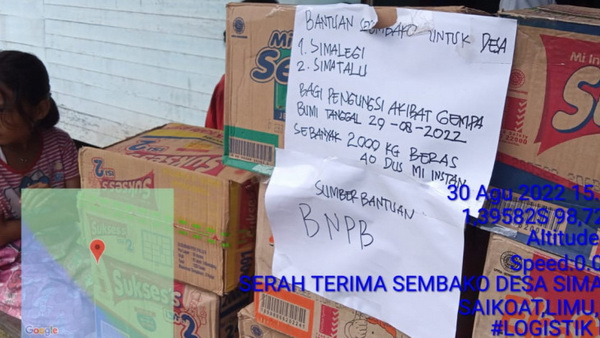 BANTUAN SEMBAKO UNTUK DESA
1. SIMALEGI
2. SIMATALU
BAGI PENGUNGSI AKIBAT GEMPA
BUMI TANGGAL 29-08-2022
SEBANYAK 2000 KG BERAS
40 DUS MI INSTAN
SUMBER BANTUAN
BNPB
Mi
Se
Mi In
ISI 2
SUKSES'S
Sukses's
ISI 2
30 Agu 2022 15.
1,39582S 98,72
Altitude
Speed:0.0
SERAH TERIMA SEMBAKO DESA SIMA
SAIKOAT,LIMU,
#LOGISTIK
Google